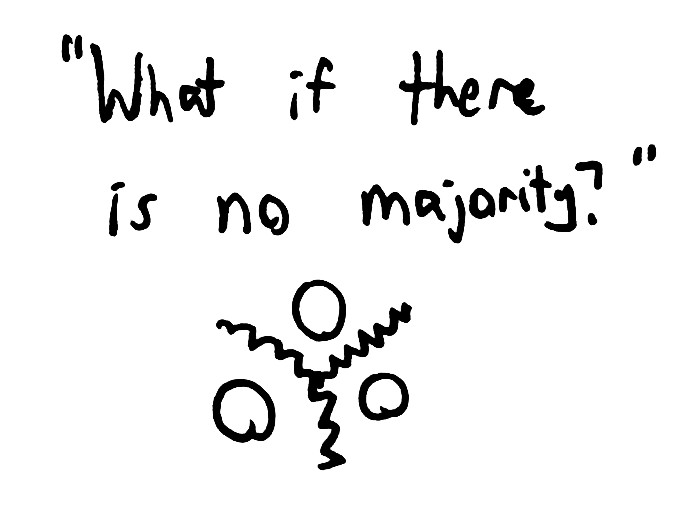 "What if there
is no majority?"